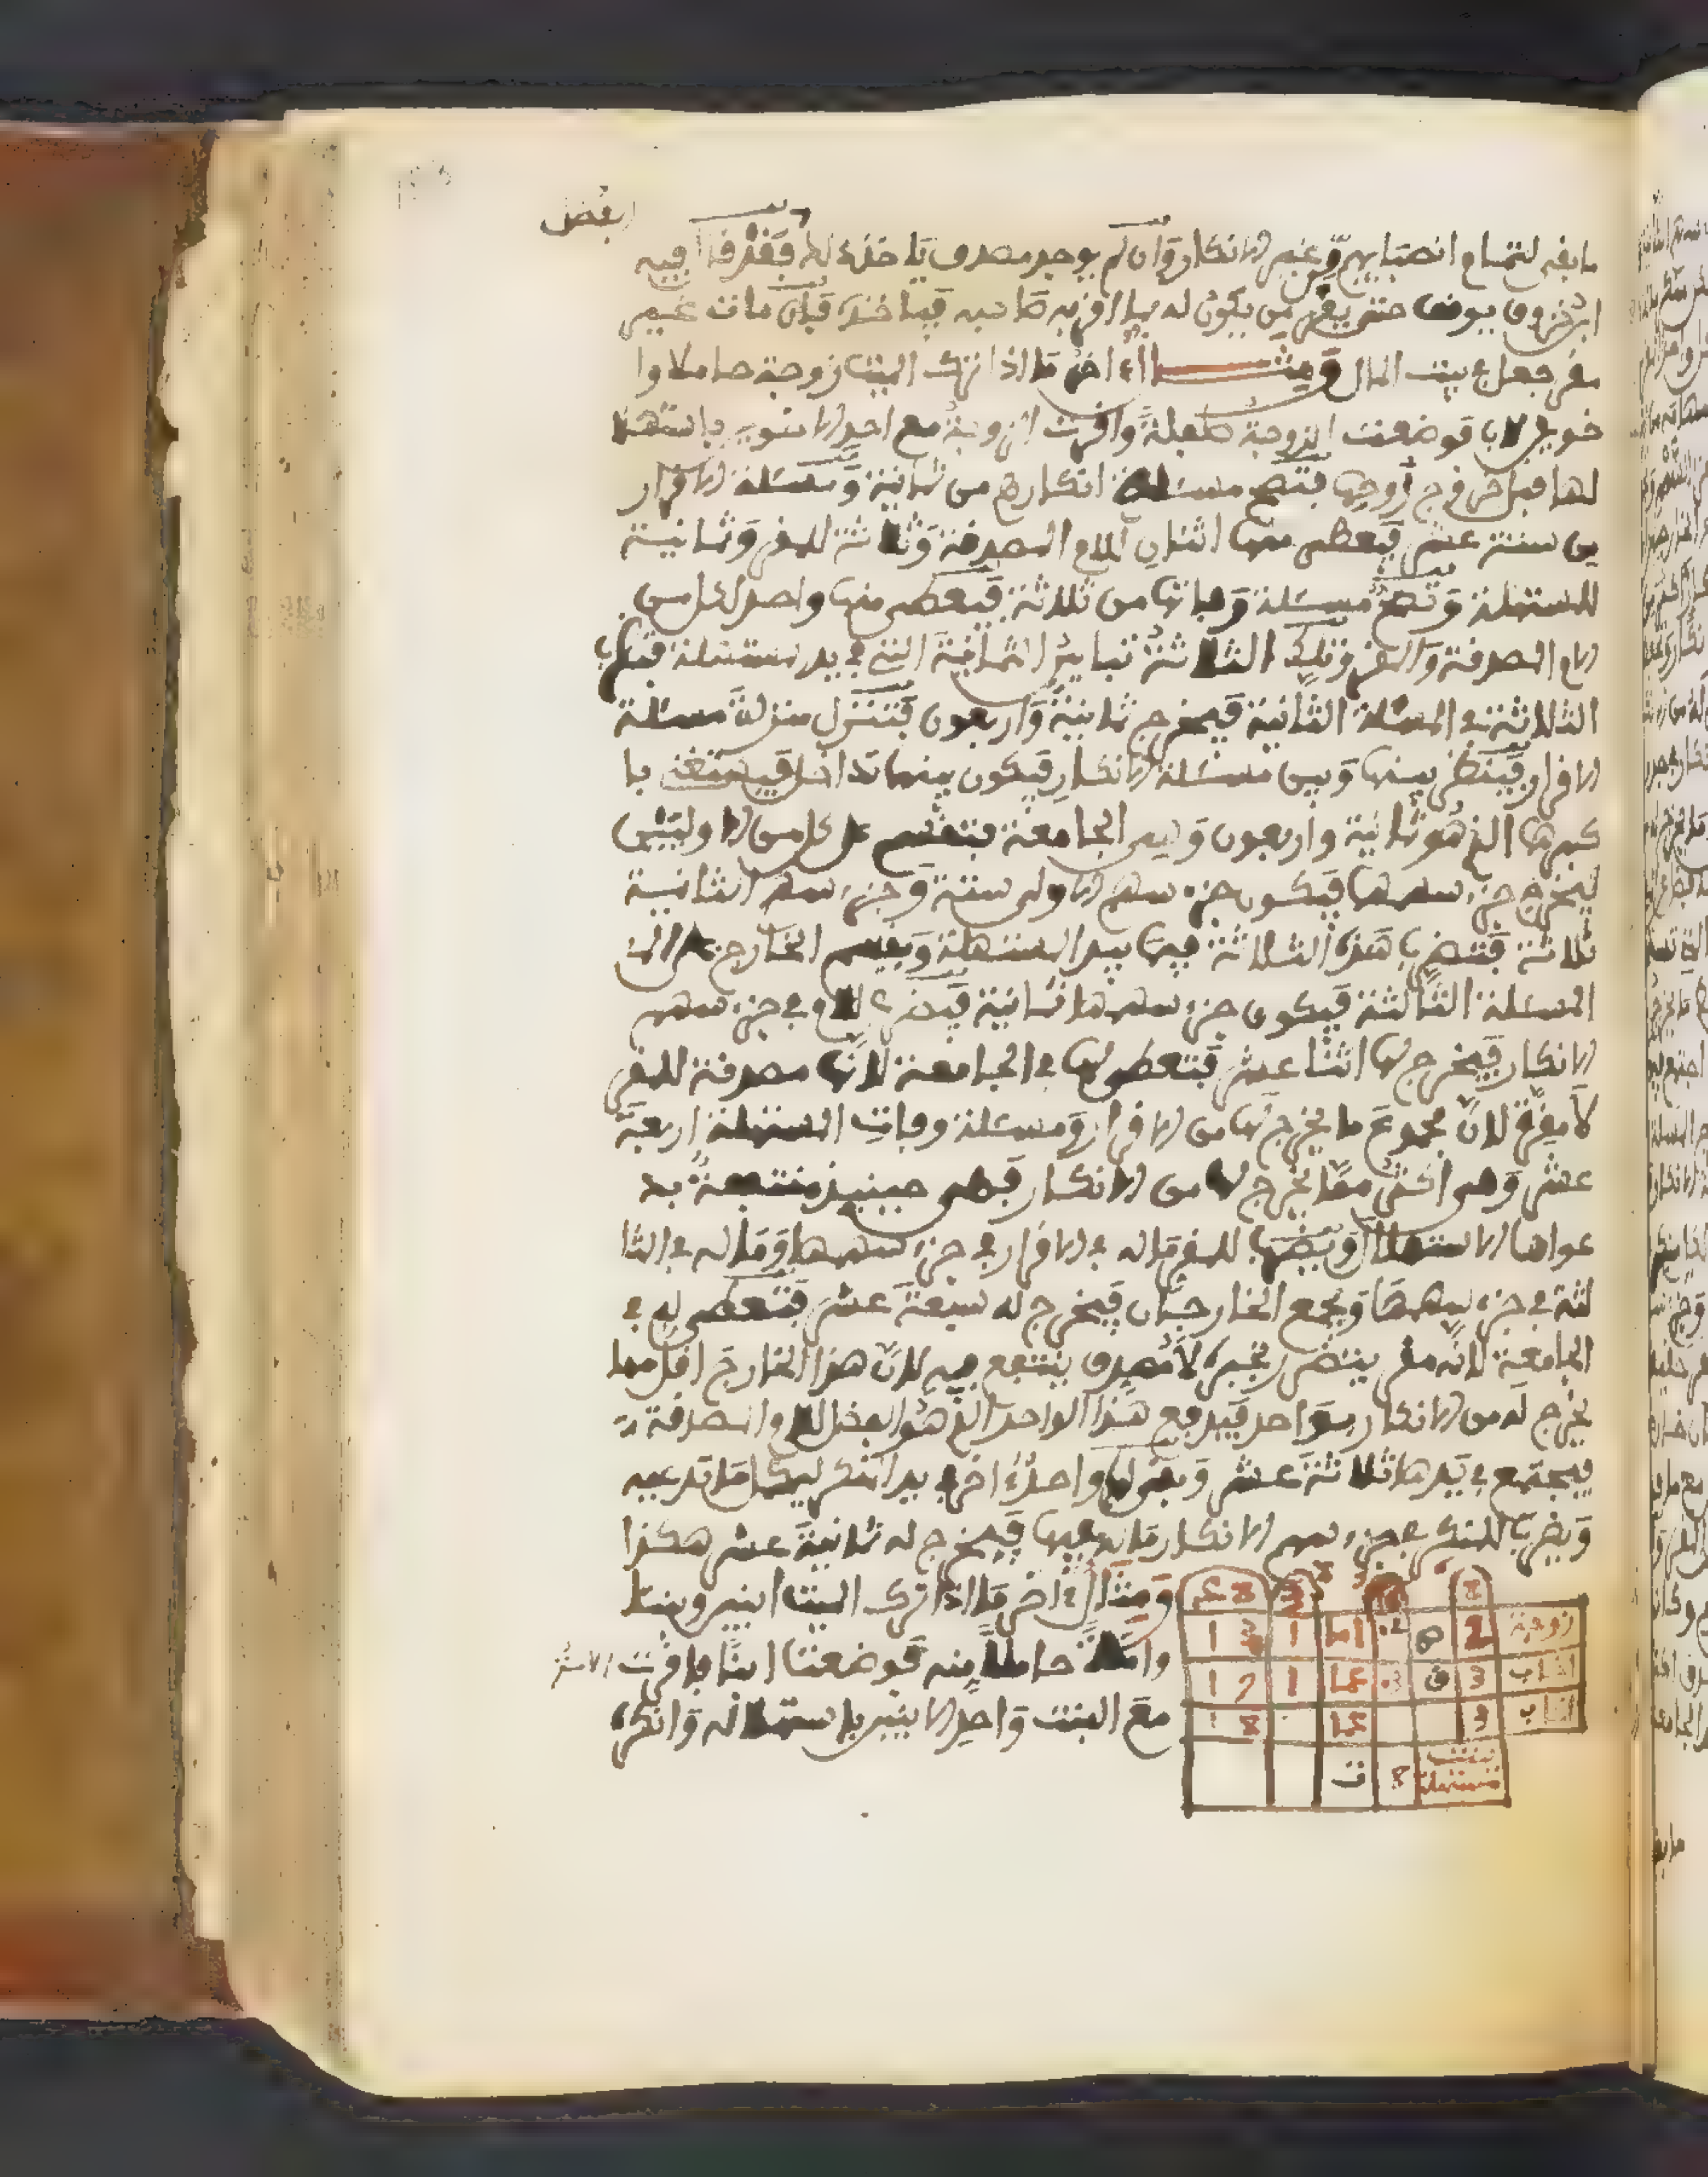 ما بقي لتمام انصبايهم وعنهم الانكار وان لم يوجد مصدف ياخذه له فقد قا فيه
ابن خروف يوقف حتى يقر من يكون له بما اقر به صاحبه فياخذه فان مات غيم
مقر جعل في بيت المال ومثال اخر ما اذا ترك الميت زوجة حاملا وا
خوين لاب فوضعت الزوجة طفلة واقرت الزوجة مع احد الاخوين باستهلا
لها قبل خروج زوجها فتصح مسئلة انكارهم من ثمانية ومسئلة الاقرار
من ستة عشر فيعطى منها اثنان للام المصدفة وثلاثة للمقر وثمانية
للمستهلة وتصح مسئلة وفاتها من ثلاثة فيعطى منها واحد لكل من
الام المصدفة والمقر وتلك الثلاثة تباين الثمانية التي في يد المستهلة فتضرب
الثلاثة في المسئلة الثانية فيخرج ثمانية واربعون فتتنزل منزلة مسئلة
الاقرار فينظر بينها وبين مسئلة الانكار فيكون بينهما تداخل فيستغنى با
كبرها الذي هو ثمانية واربعون وهي الجامعة فتنقسم على كل من الاوليين
ليخرج جزء سهمها فيكون جزء سهم الاولى ستة وجزء سهم الثانية
ثلاثة فتضرب هذه الثلاثة فيما بيد المستهلة ويقسم الخارج على
المسئلة الثالثة فيكون جزء سهمها ثمانية فيضرب للام في جزء سهم
الانكار فيخرج لها اثنا عشر فتعطى لها في الجامعة لانها مصدفة للمقر
لا مقرة لان مجموع ما يخرج لها من الاقرار ومسئلة وفات المستهلة اربعة
عشر وهي اكثر مما يخرج لها من الانكار فهي حينيذ منتفعة بد
عواها الاستهلال ويضرب للمقر ماله في الاقرار في جزء سهمها وماله في الثا
لثة في جزء سهمها ويجمع الخارجان فيخرج له سبعة عشر فتعطى له في
الجامعة لانه مقر يتضرر بخبره لا مصدق ينتفع فيه لان هذا الخارج اقل مما
يخرج له من الانكار بواحد فيدفع هذا الواحد الذي هو الفضل للام المصدفة
فيجتمع في يدها ثلاثة عشر ويبقى لها واحد اخر في يد المنكر ليكمل ما تدعيه
ويضرب للمنكر في جزء سهم الانكار ماله فيها فيخرج له ثمانية عشر هكذا
ومثال اخر ما اذا ترك الميت ابنين وبنتا
وامراة حاملا منه فوضعت ابنا فاقرت الام
مع البنت واحد الابنين باستهلاله وانكره
زوجة 2 0 2 اما 1 1 3
اخ لاب 3 ق 3 عما 1 1 7
اخ لاب 3 عما 1 8
بنت مستهلة 8 ت